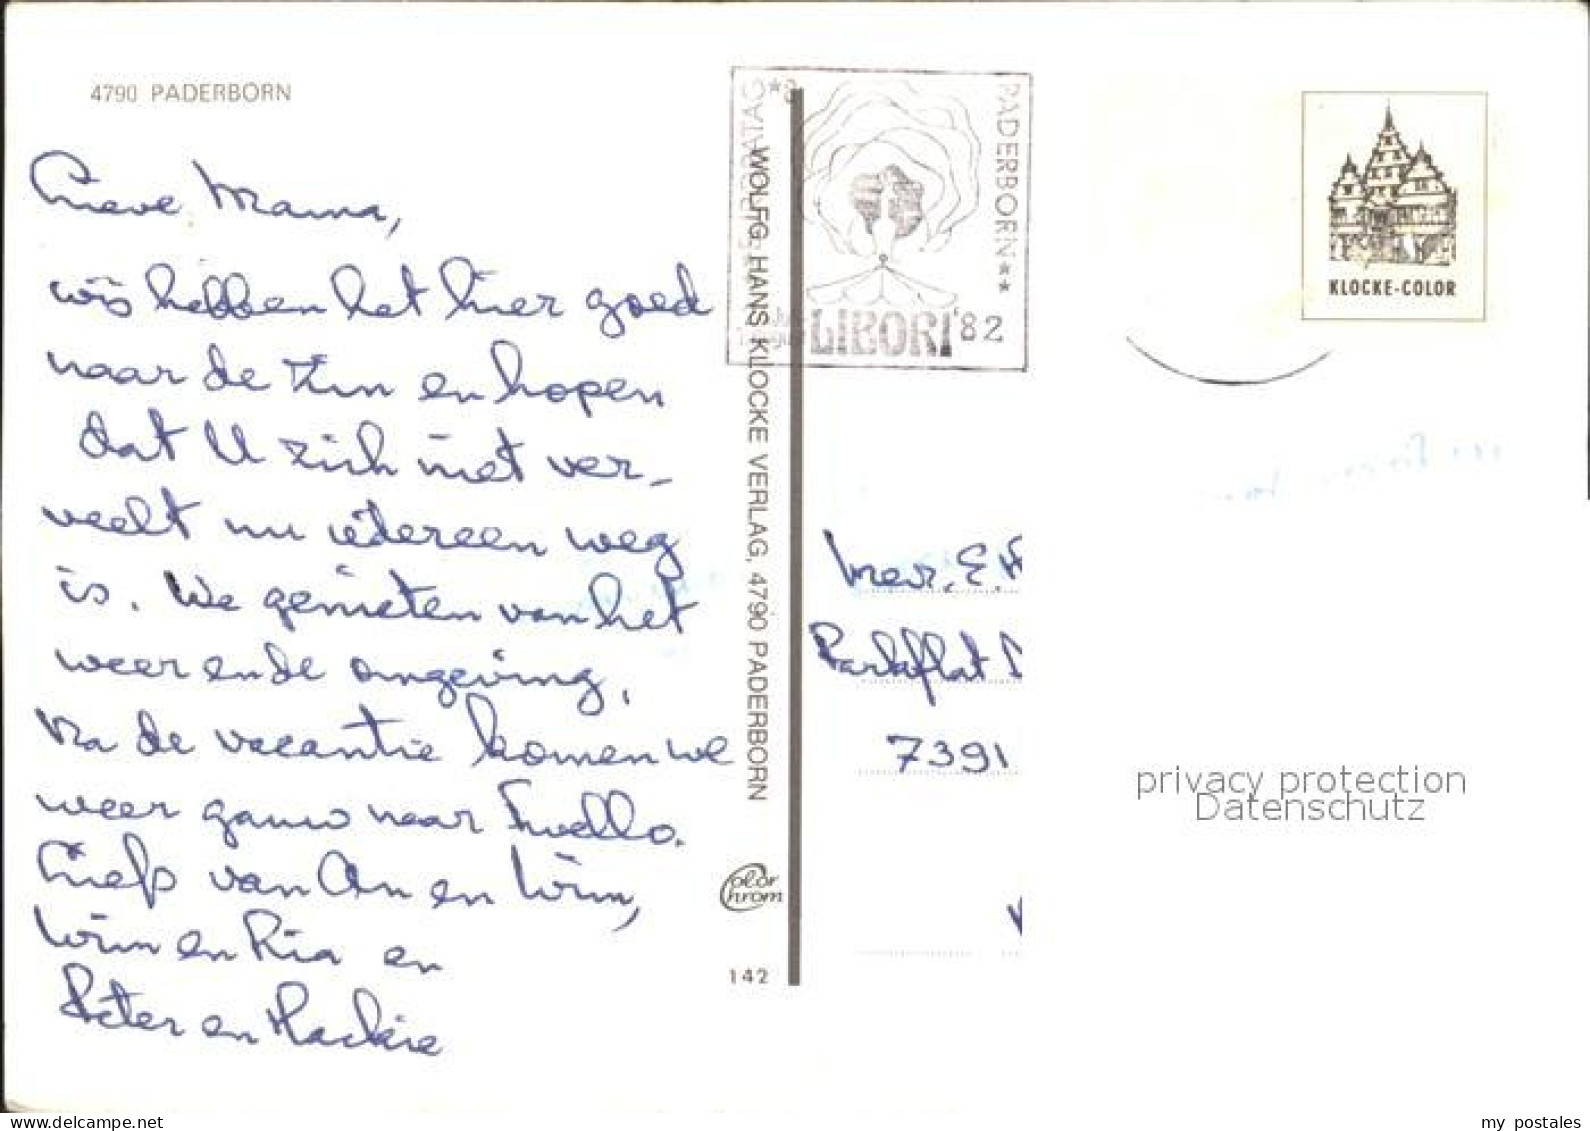 4790 PADERBORN
Lieve Mama,
wij hebben het hier goed
naar de zin en hopen
dat U zich niet ver-
veelt nu iedereen weg
is. We genieten van het
weer en de omgeving.
Na de vacantie komen we
weer gauw naar Twello.
Liefs van An en Wim,
Wim en Ria en
Peter en
WOLFG. HANS KLOCKE VERLAG, 4790 PADERBORN
Color Chrom
142
PADERBORN**
LIBORI '82
KLOCKE-COLOR
Mevr. E.
Parkflat
7391
privacy protection
Datenschutz
47906 Paderborn
my postales